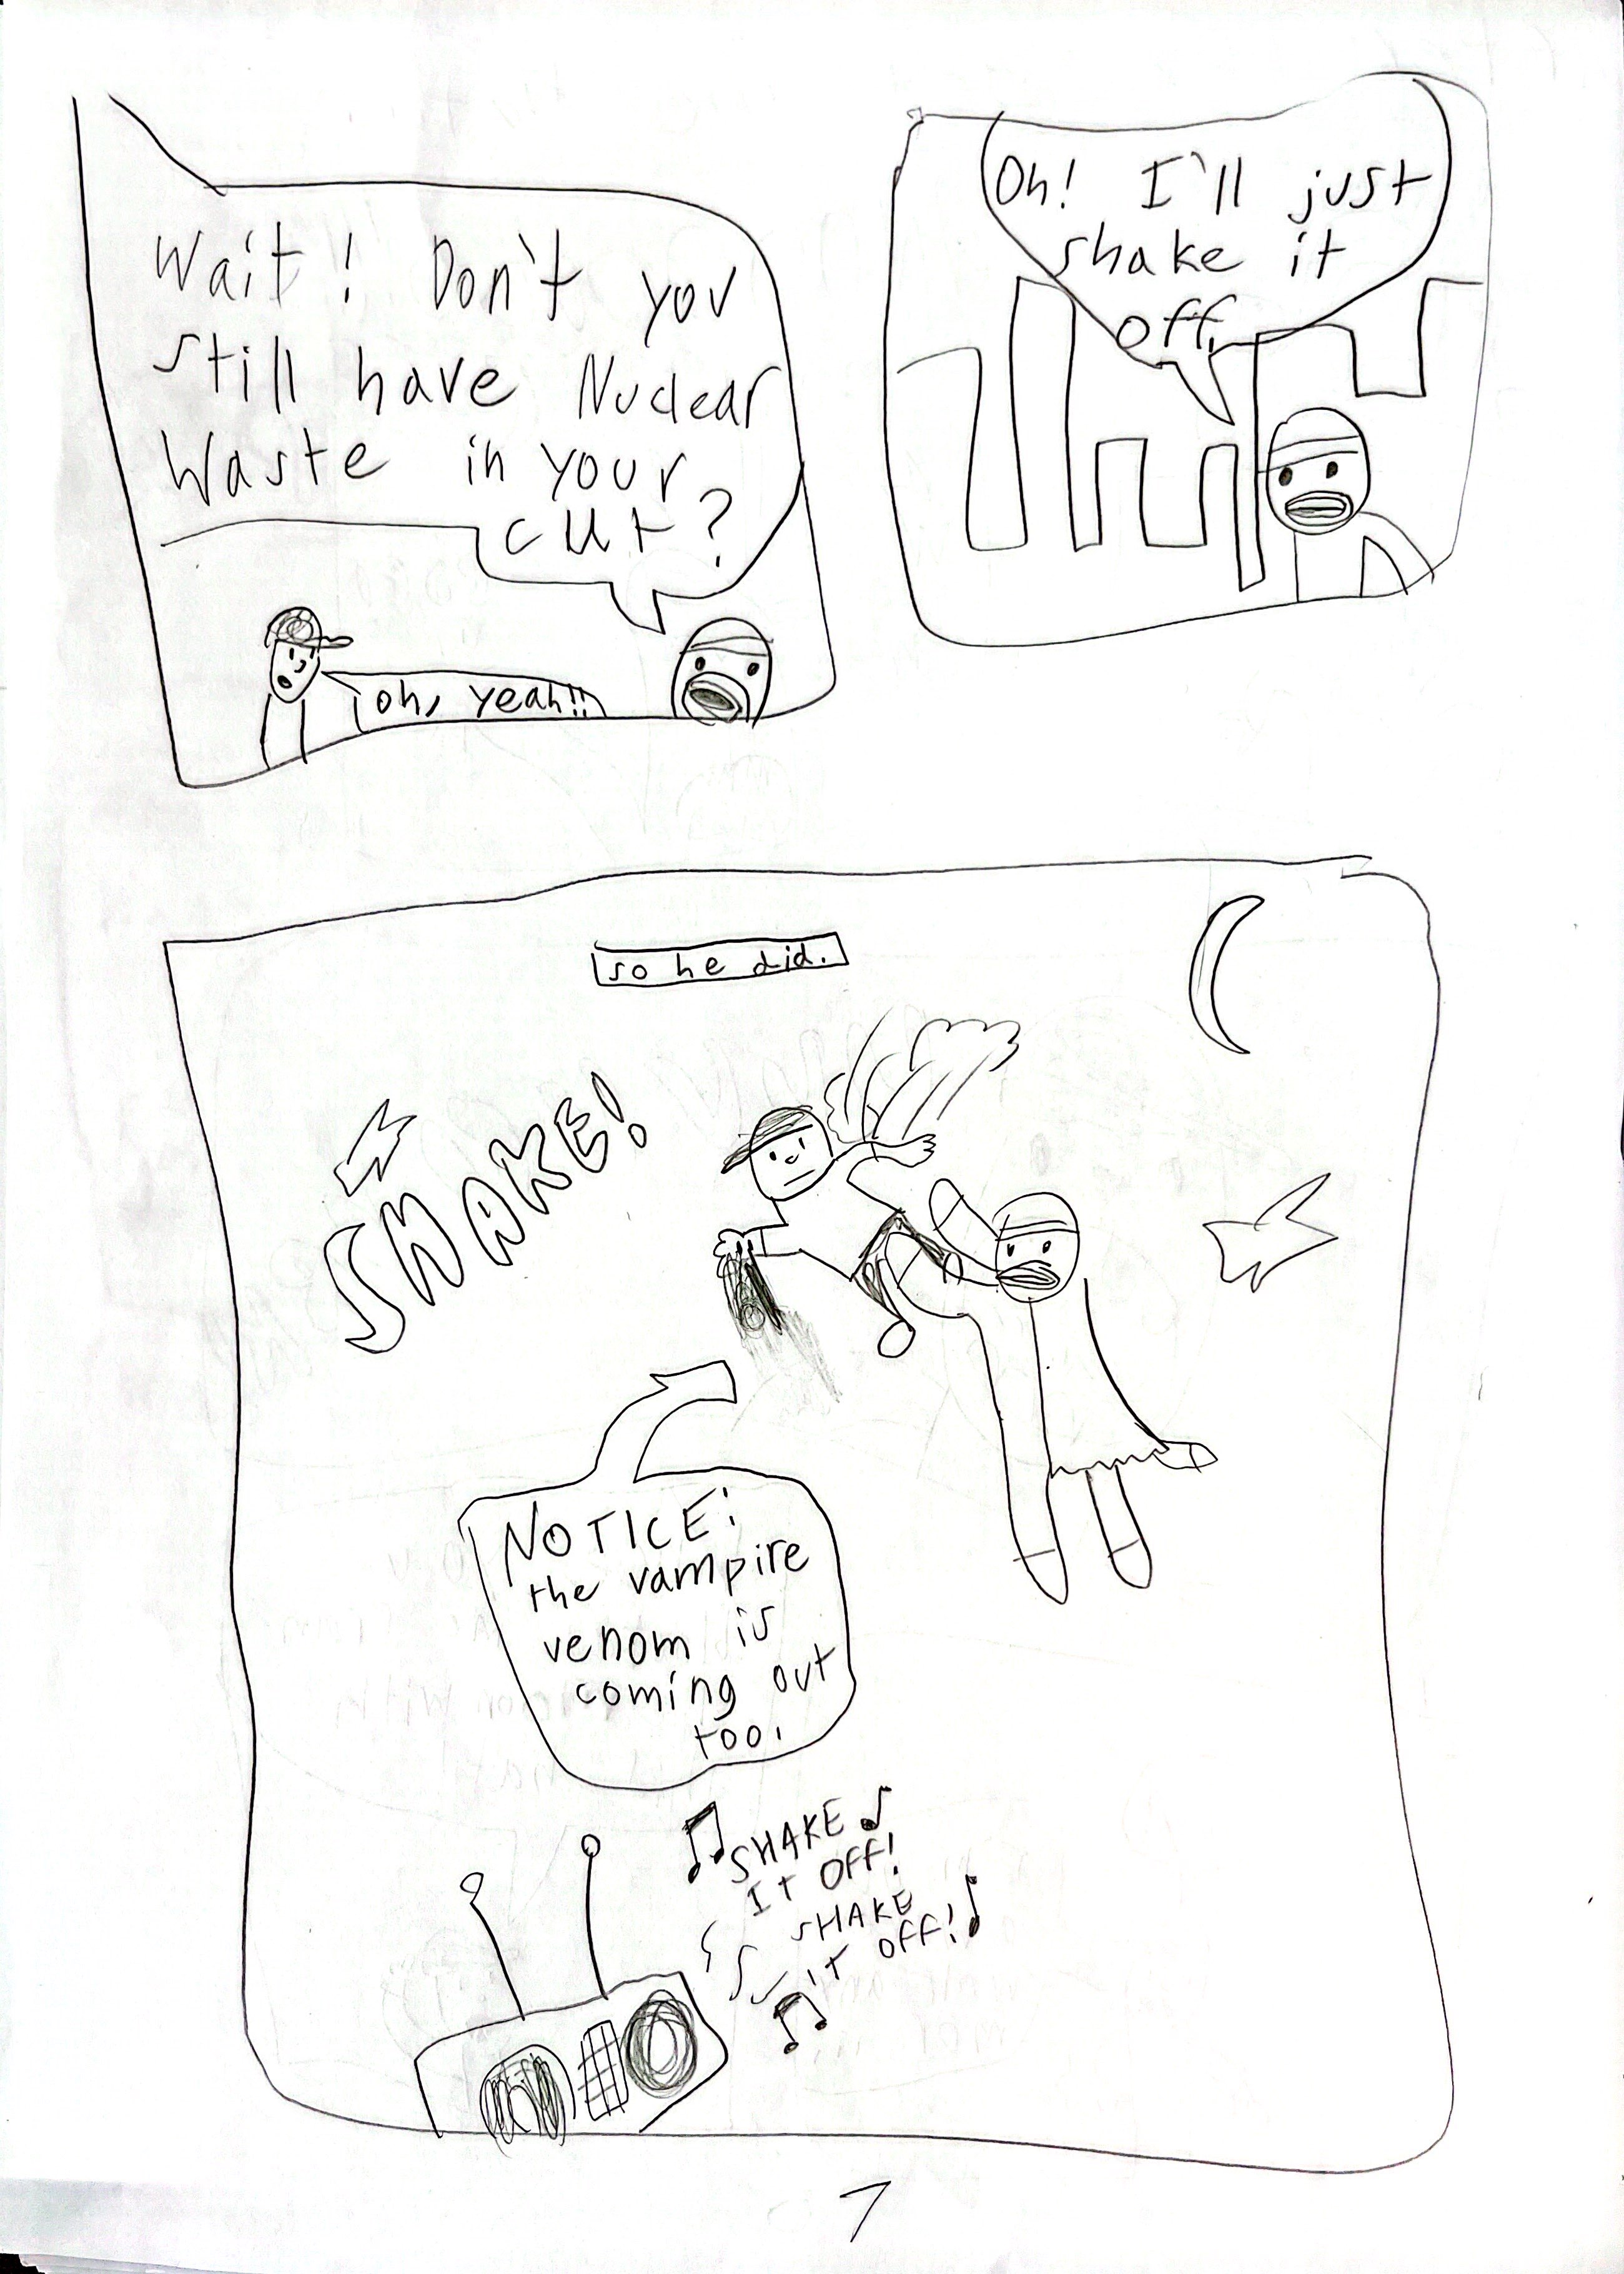 Wait! Don't you
still have Nuclear
Waste in your
cut?
oh, yeah!!
Oh! I'll just
shake it
off.
so he did.
SHAKE!
NOTICE:
the vampire
venom is
coming out
too.
SHAKE
IT OFF!
SHAKE
IT OFF!
7